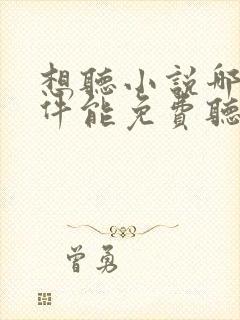 想聽小說哪
件能免費聽
曾勇